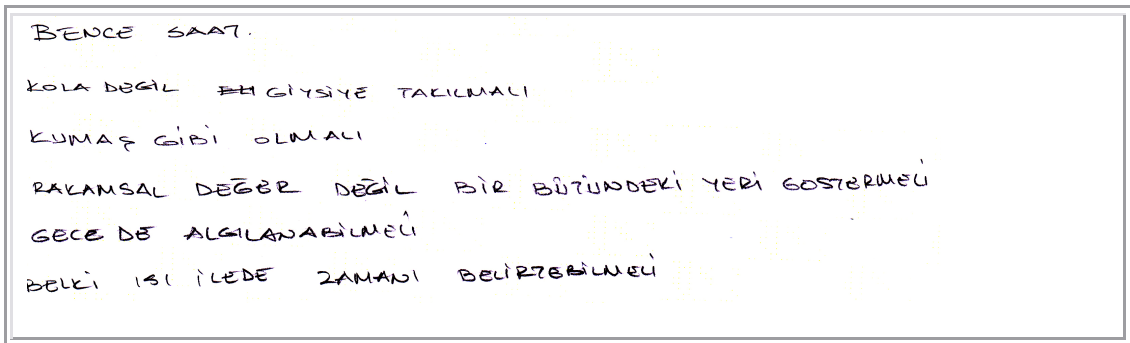 BENCE SAAT.
KOLA DEĞİL GİYSİYE TAKILMALI
KUMAŞ GİBİ OLMALI
RAKAMSAL DEĞER DEĞİL BİR BÜTÜNDEKİ YERİ GOSTERMELİ
GECE DE ALGILANABİLMELİ
BELKİ ISI İLEDE ZAMANI BELİRTEBİLMELİ